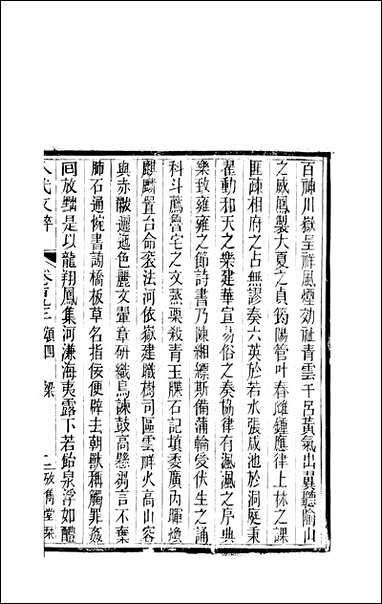 百神川嶽呈祥風煙効祉青雲干呂黃氣出翼聽陰山
之威鳳製大夏之貞筠陽管叶春雌鍾應律上林之課
匪疎相府之占無謬奏六英於若水張咸池於洞庭秉
翟動和天之樂建華宣易俗之奏協律有渢渢之序典
樂致雍雍之節詩書乃陳緗縹斯備蒲輪愛伏生之誦
科斗薦魯宅之文蒸栗殺青玉牒石記填委廣內暉煥
麒麟置台命袞法河依嶽建職樹司區雲祥火高山容
與赤黻邐迤色麗文翬章研織鳥諫鼓高懸芻言不棄
肺石通惋書謗橋板草名指佞便辟去朝獸稱觸罪姦
回放黜是以龍翔鳳集河溓海夷露下若飴泉浮如醴
八代文粹 卷百三 頌四 梁 攷雋堂琹